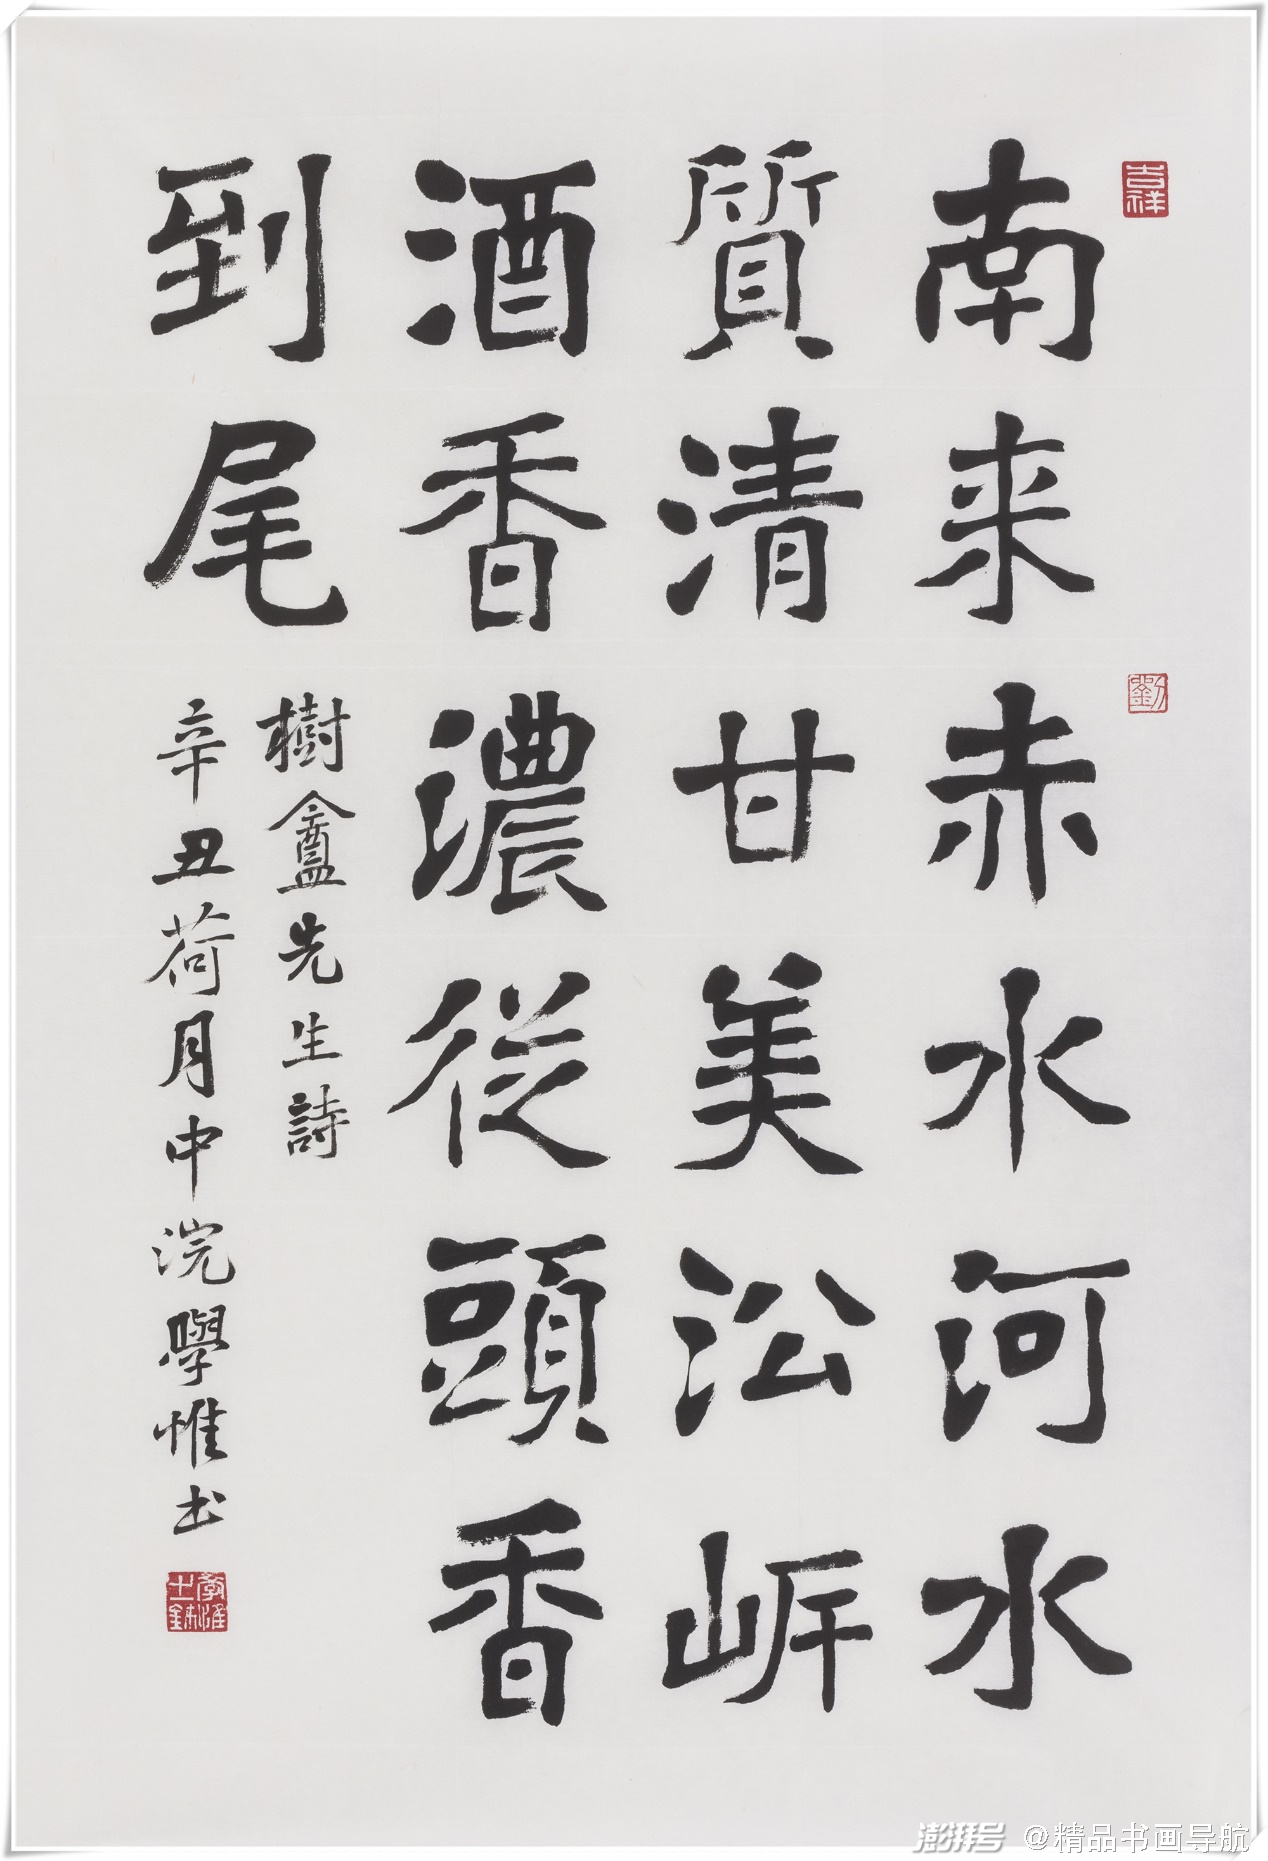 南来赤水河水
質清甘美沿岸
酒香濃從頭香
到尾
樹盦先生詩
辛丑荷月中浣學惟书
吉祥
劉
澎湃号 @精品书画导航